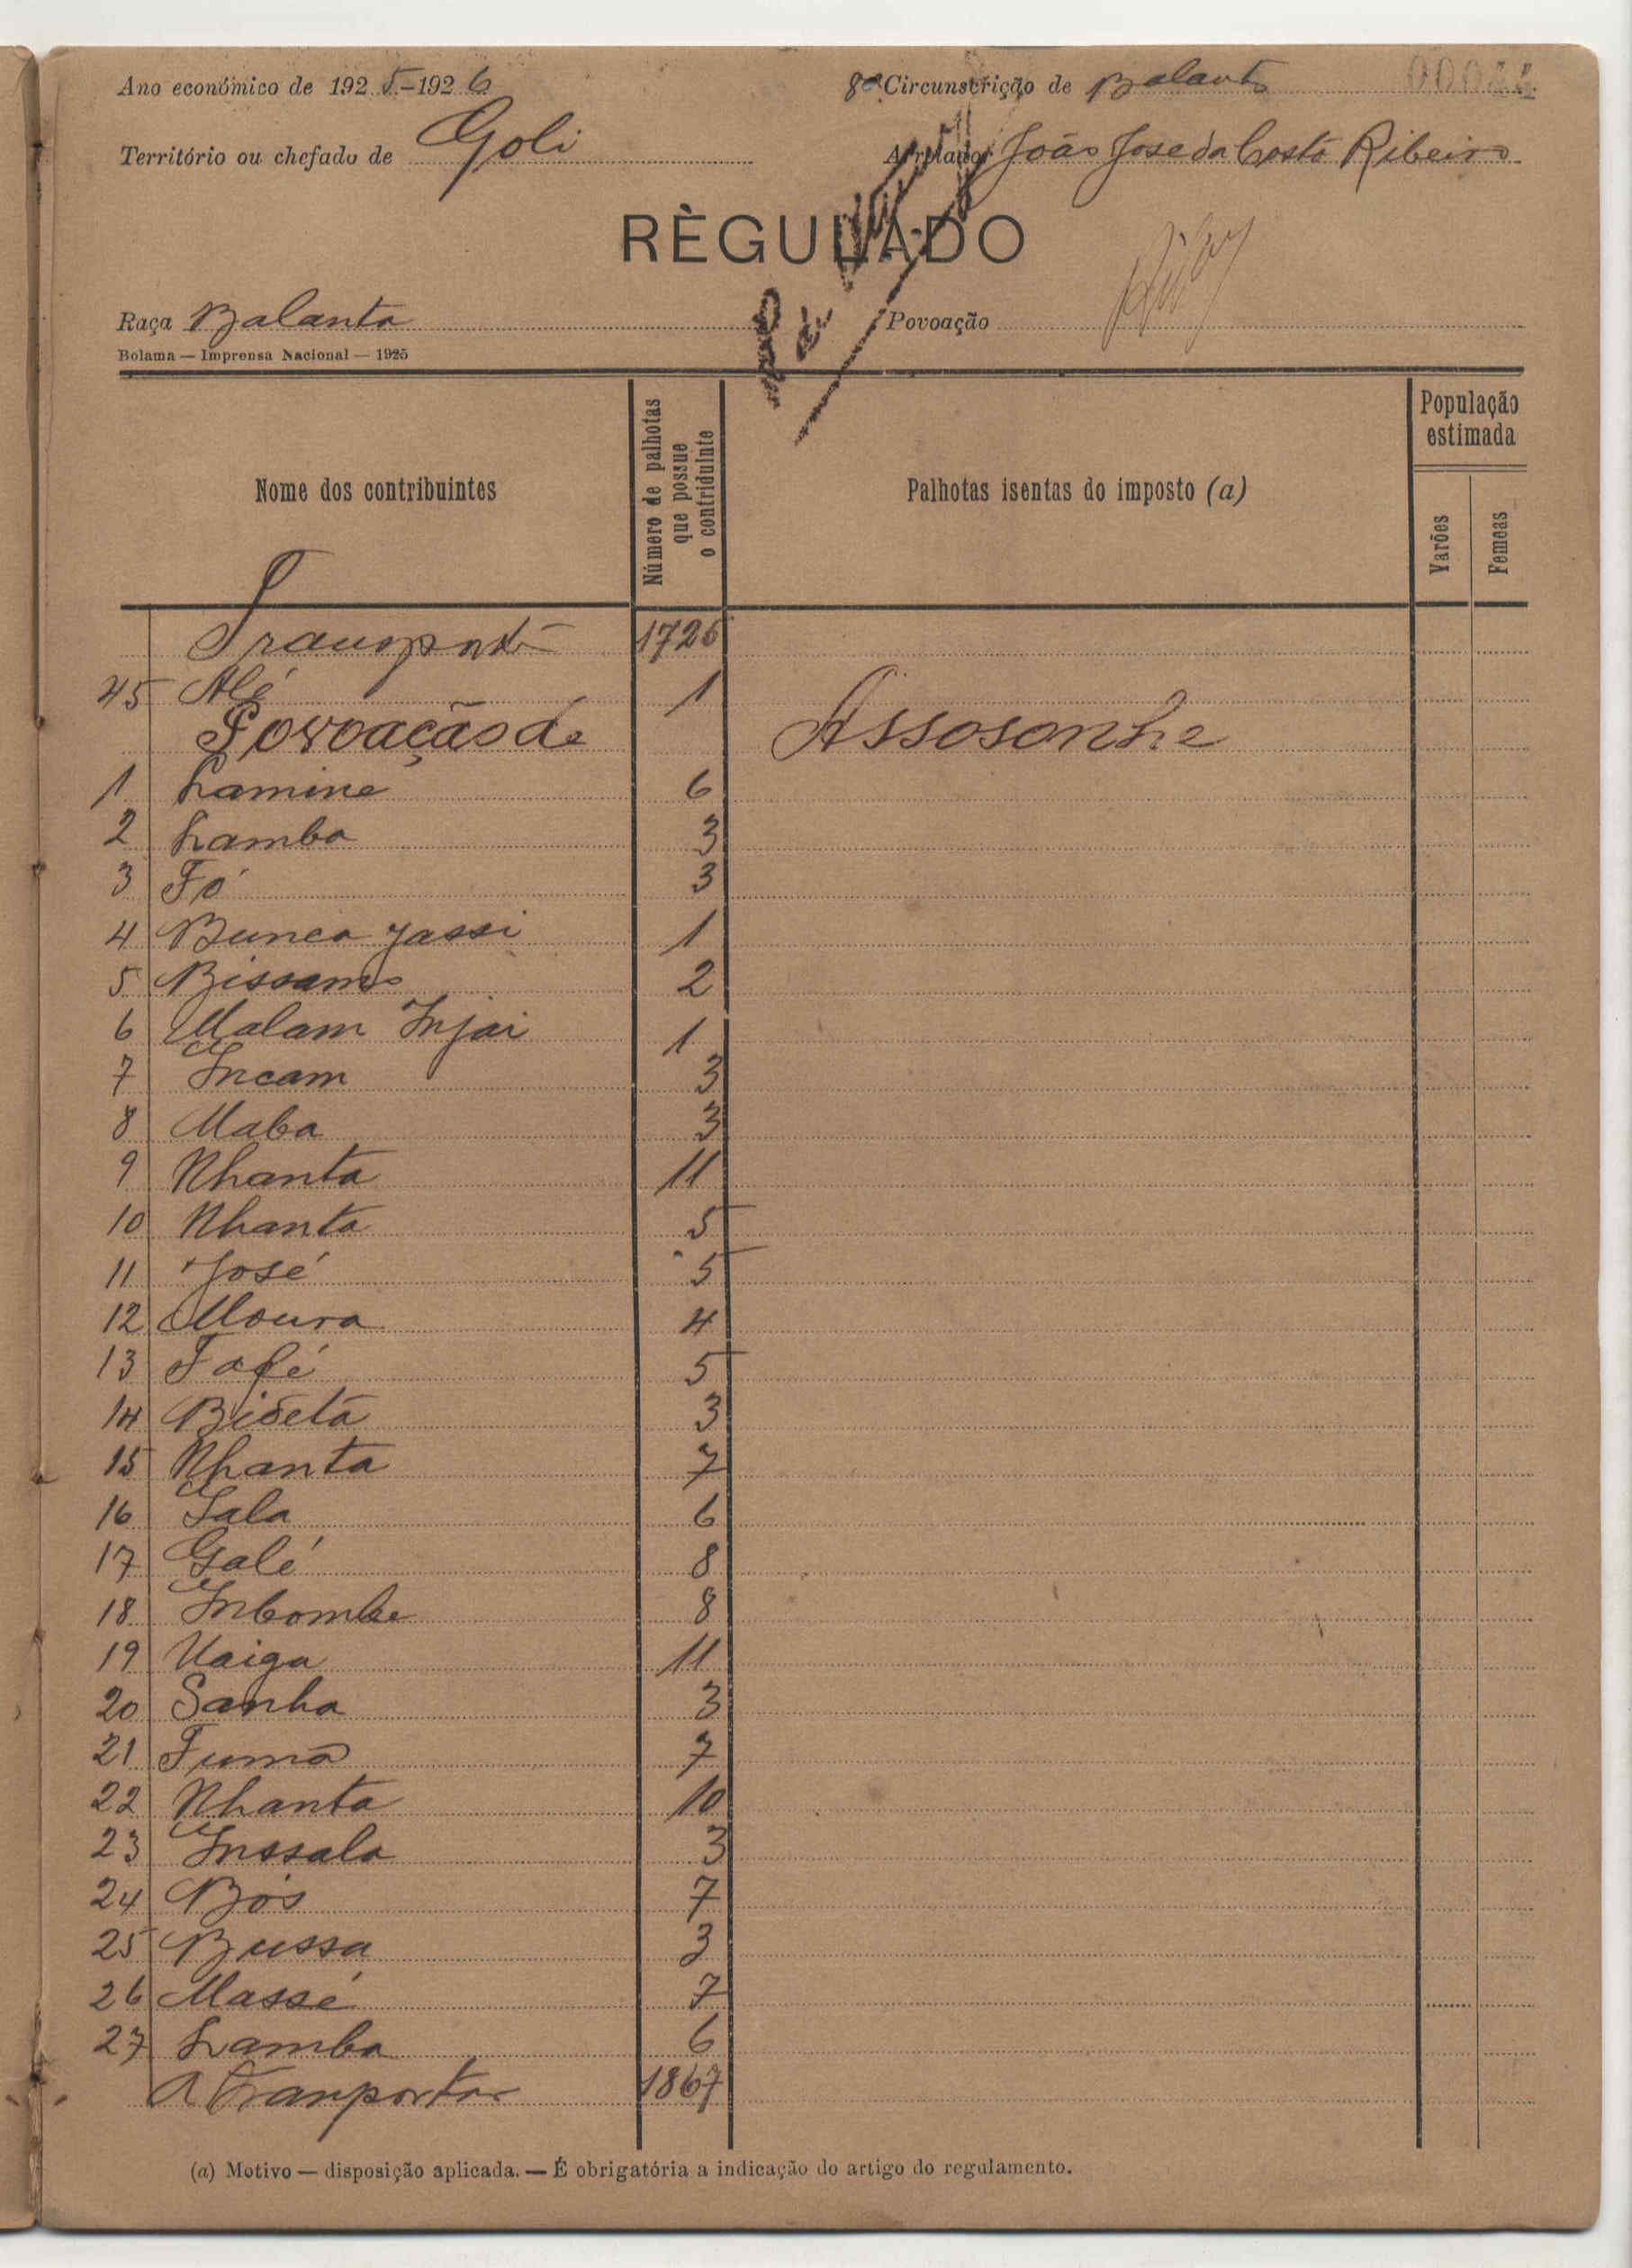 Ano económico de 1925-1926
8ª Circunscrição de Balanta
Território ou chefado de Goli
Arrolador João José da Costa Ribeiro
RÈGULADO
Raça Balanta
Povoação
Bolama — Imprensa Nacional — 1925
Nome dos contribuintes
Número de palhotas que possue o contriduinte
Palhotas isentas do imposto (a)
População estimada
Varões
Femeas
Transporte 1726
45 Alé 1
Povoação de Assosonhe
1 Lamine 6
2 Lamba 3
3 Fó 3
4 Bunca Jassi 1
5 Bissam 2
6 Malam Injai 1
7 Incam 3
8 Maba 3
9 Nhanta 11
10 Nhanta 5
11 José 5
12 Moura 4
13 Fafé 5
14 Bideta 3
15 Nhanta 7
16 Iala 6
17 Galé 8
18 Inbombe 8
19 Uaiga 11
20 Sanha 3
21 Fuma 7
22 Nhanta 10
23 Inssala 3
24 Bós 7
25 Bussa 3
26 Massé 7
27 Lamba 6
A tranportar 1867
(a) Motivo — disposição aplicada. — É obrigatória a indicação do artigo do regulamento.